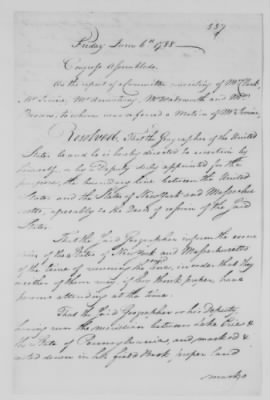 337
Friday June 6th 1788
Congress Assembled.
On the report of a Committee consisting of Mr Clark,
Mr Irvine, Mr Armstrong, Mr Wadsworth and Mr
to whom was referred a Motion of Mr Irvine,
Resolved, That the Geographer of the United
States be and he is hereby directed to ascertain by
himself or by a Deputy duly appointed for the
purpose, the boundary line between the United
States and the States of New York and Massachu
setts, agreeably to the Deeds of cession of the said
States.
That the said Geographer inform the execu
tives of the States of New York and Massachusetts
of the time of running the line, in order that they
or either of them may, if they think proper, have
persons attending at the time.
That the said Geographer or his Deputy
having run the meridian between Lake Erie &
the State of Pennsylvania, and marked &
noted down in his field Book, proper land
marks